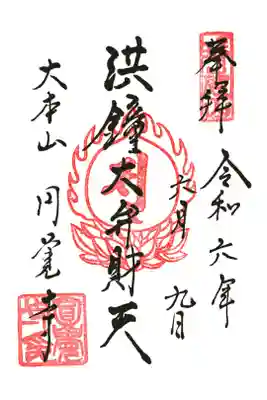 奉拝
令和六年
九月
九日
洪鐘大弁財天
大本山 円覚寺